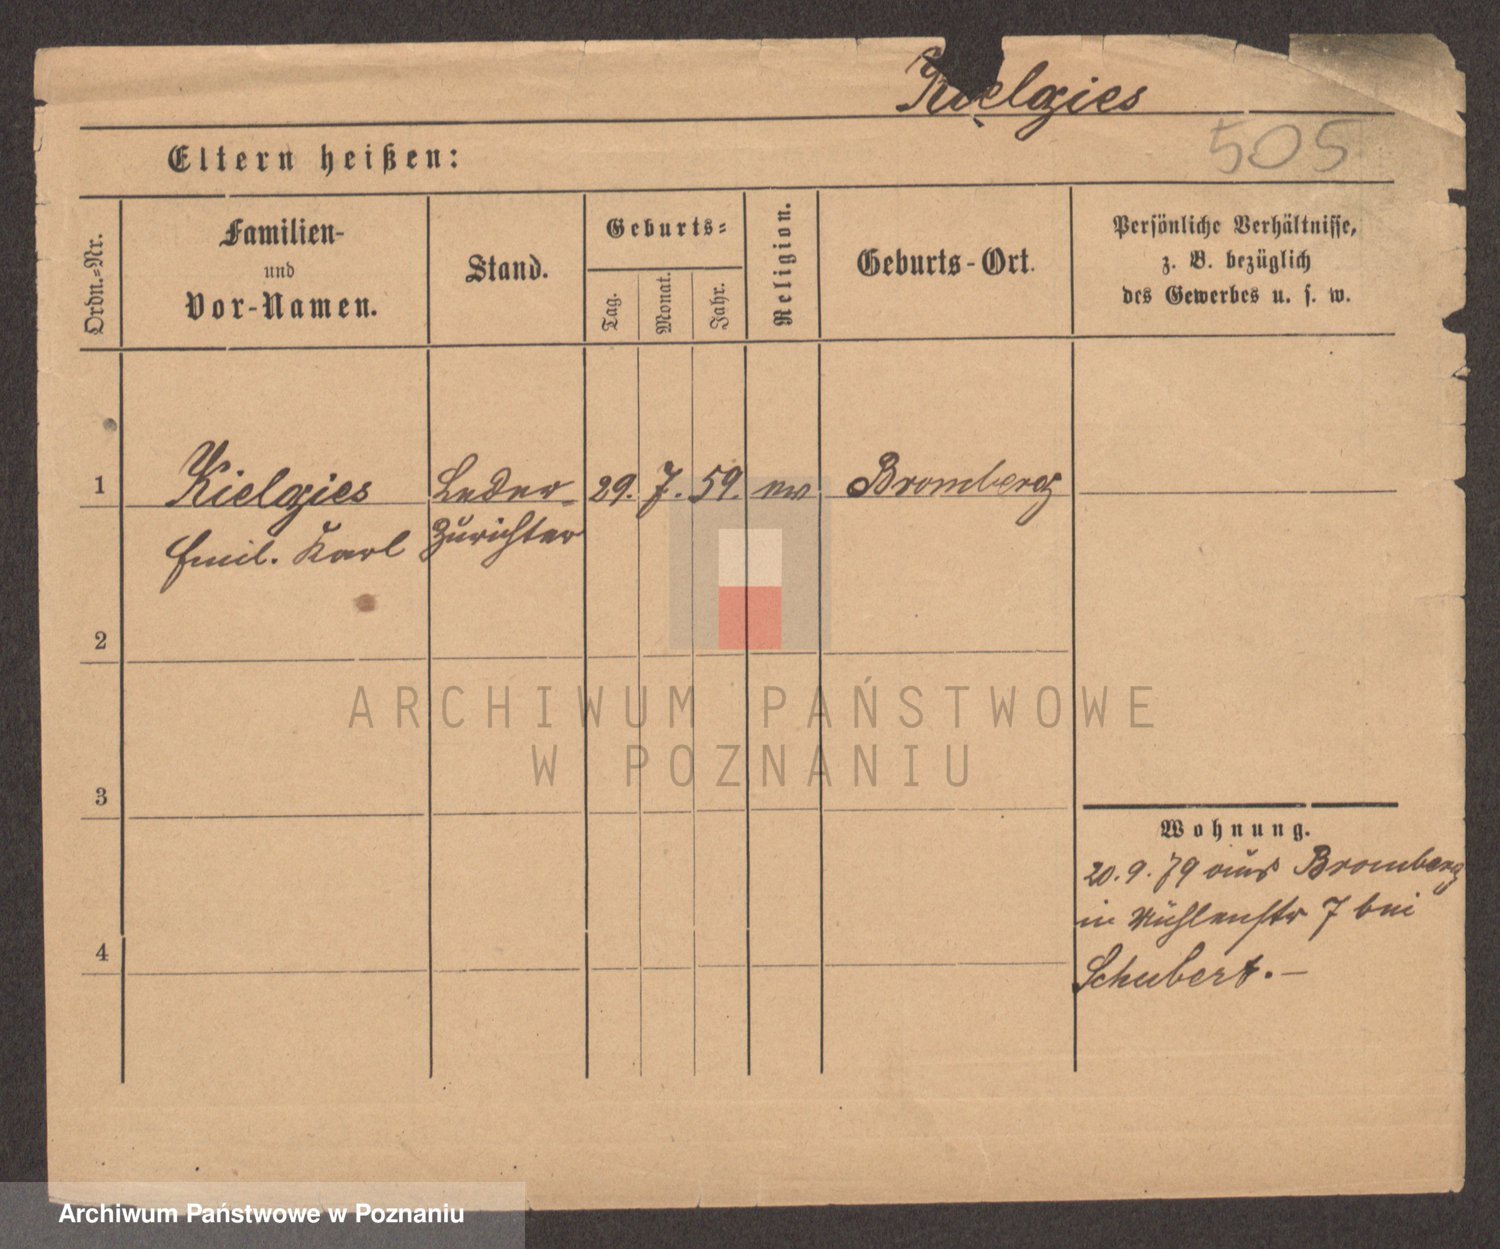 Kielgies
505
Eltern heißen:
Ordn.-Nr.
Familien-
und
Vor-Namen.
Stand.
Geburts-
Tag.
Monat.
Jahr.
Religion.
Geburts-Ort.
Persönliche Verhältnisse,
z. B. bezüglich
des Gewerbes u. s. w.
1 Kielgies Leder- 29. 7. 59. ev Bromberg
Emil. Karl Zurichter
2
3
4
Wohnung.
20.9.79 aus Bromberg
in Mühlenstr 7 bei
Schubert.—
ARCHIWUM PAŃSTWOWE
W POZNANIU
Archiwum Państwowe w Poznaniu